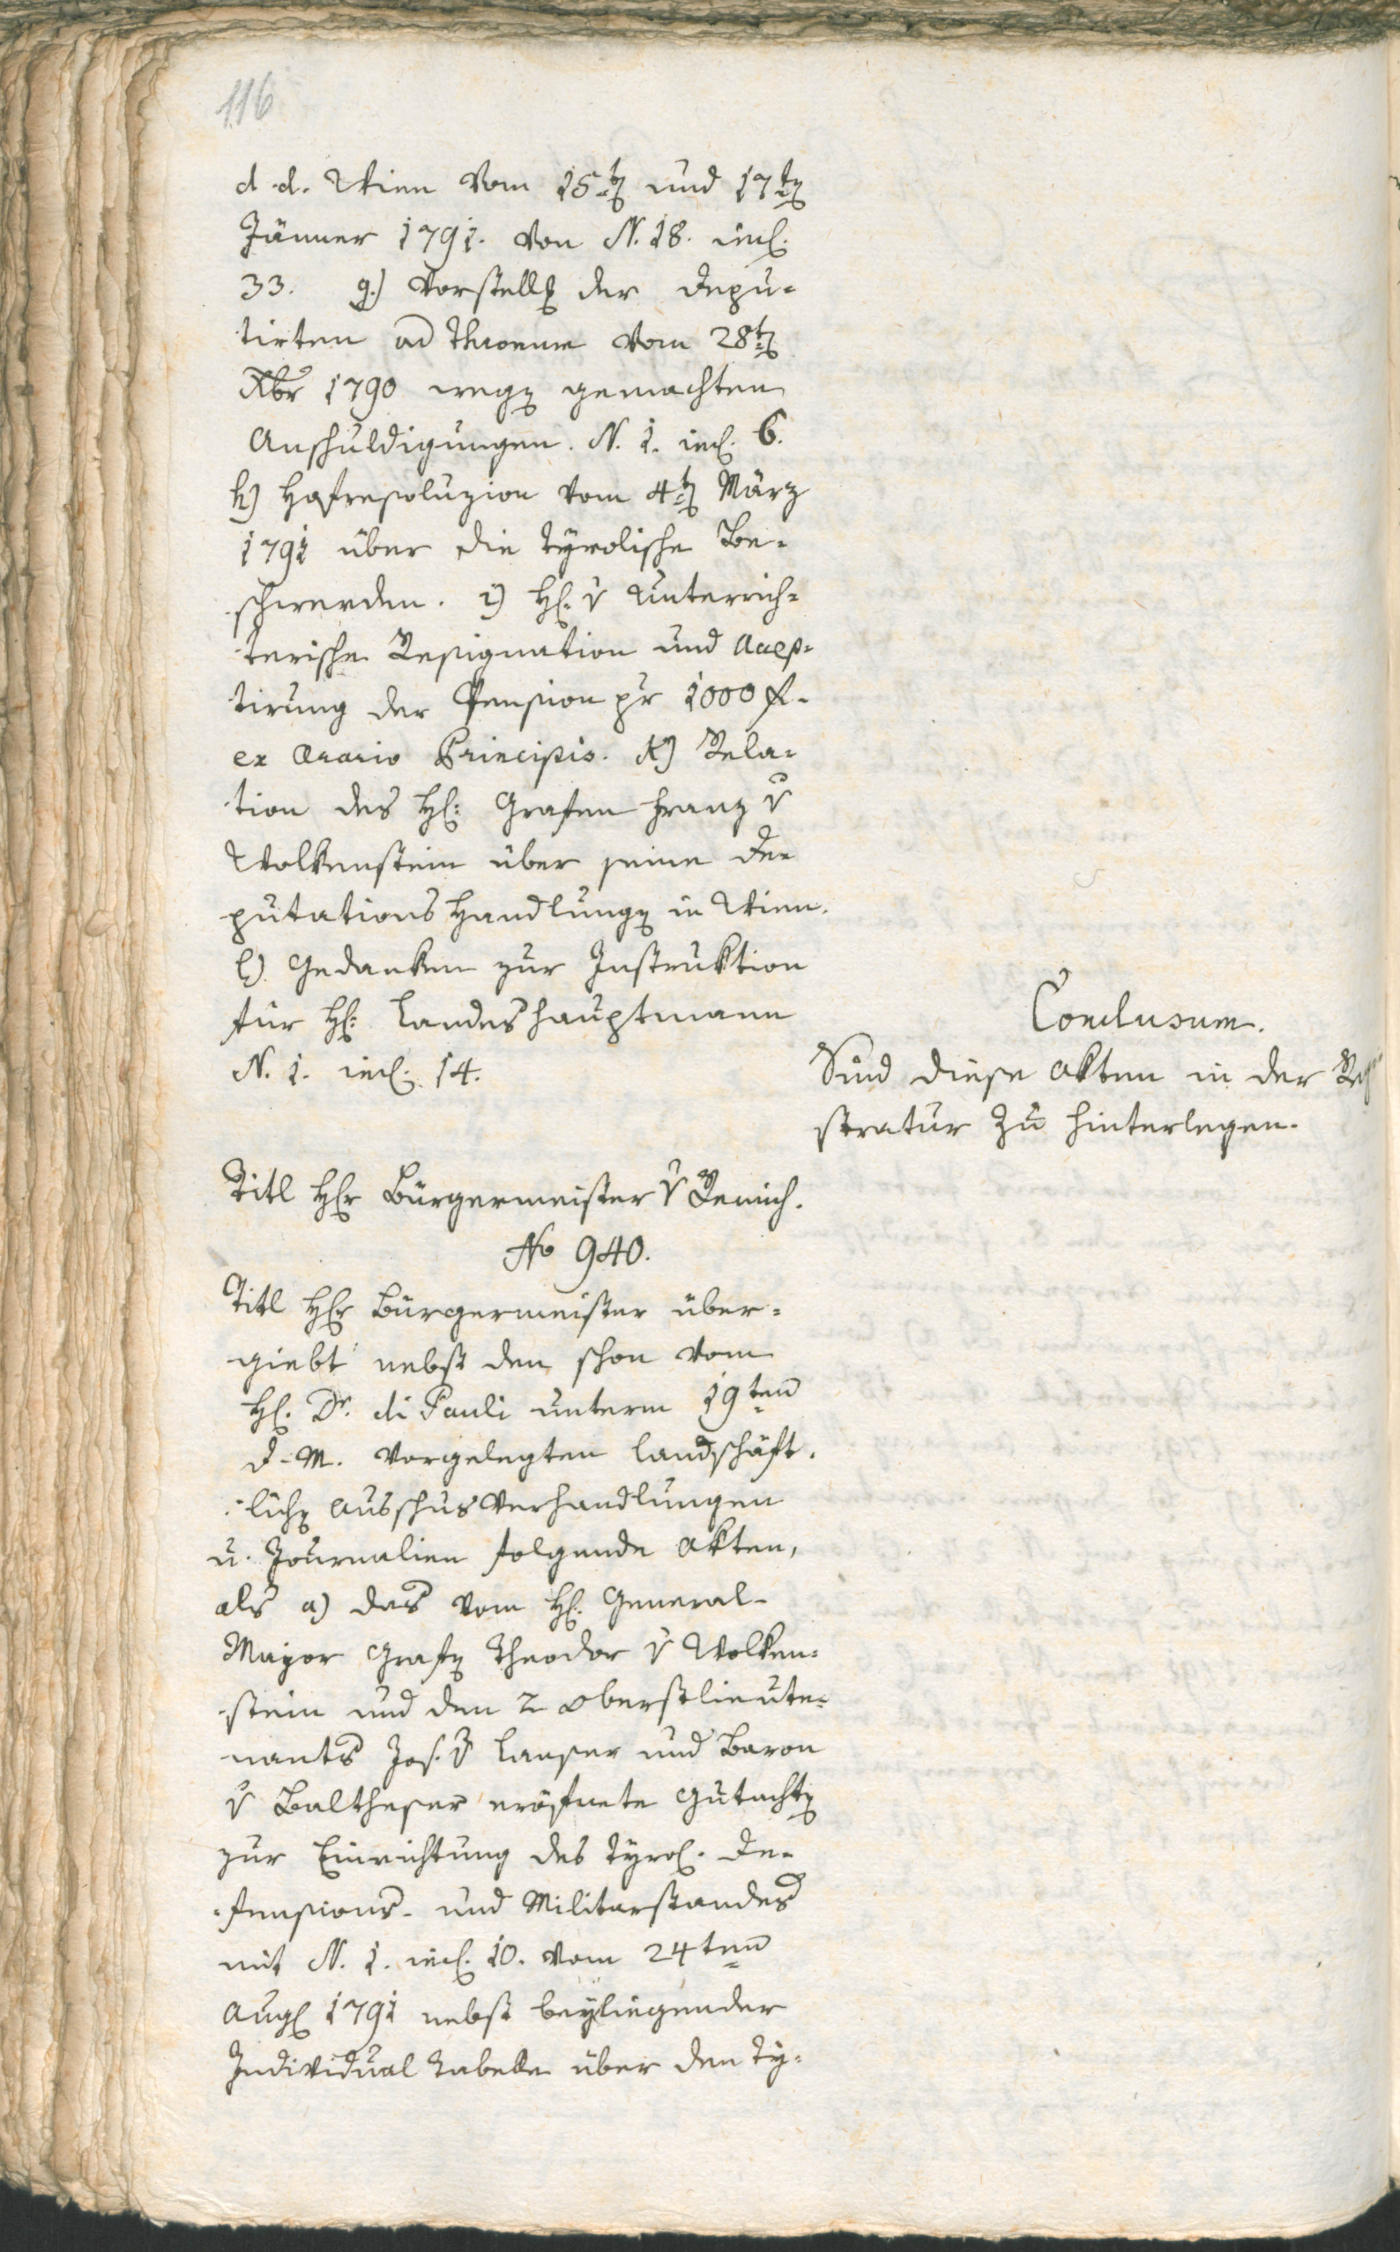 116
d. d. Wien vom 15ten und 17ten
Jänner 1791. von N. 18. incl.
33. g.) Vorstellg der Depu-
tirten ad Thronum vom 28ten
Xbr 1790 wegen gemachten
Anschuldigungen. N. 1. incl. 6.
h) Hofresoluzion vom 4ten März
1791 über die tÿrolische Be-
schwerden. i) H. v Unterrich-
terische Resignation und Accep-
tirung der Pension pr 1000 f.
ex Aerario Principis. K) Rela-
tion des H: Grafen Franz v
Wolkenstein über seine De-
putations Handlungen in Wien.
l) Gedanken zur Instruktion
für H: Landeshauptmann
N. 1. incl. 14.
Conclusum.
Sind diese Akten in der Regi
stratur zu hinterlegen.
Titl Hr Bürgermeister v Remich.
No 940.
Titl Hr Bürgermeister über-
giebt nebst den schon vom
H. Dr. di Pauli unterm 19ten
d. M. vorgelegten landschäft-
lichen Ausschusverhandlungen
u. Journalien folgende Akten,
als a) das vom H. General-
Mayor Grafen Theodor v Wolken-
stein und den 2 Oberstlieute-
nants Jos. v Lanser und Baron
v Baltheser eröfnete Gutachten
zur Einrichtung des tÿrol. De-
fensions- und Militarstandes
mit N. 1. incl. 10. vom 24ten
Augl 1791 nebst beÿliegender
Individual Tabelle über den Tÿ-